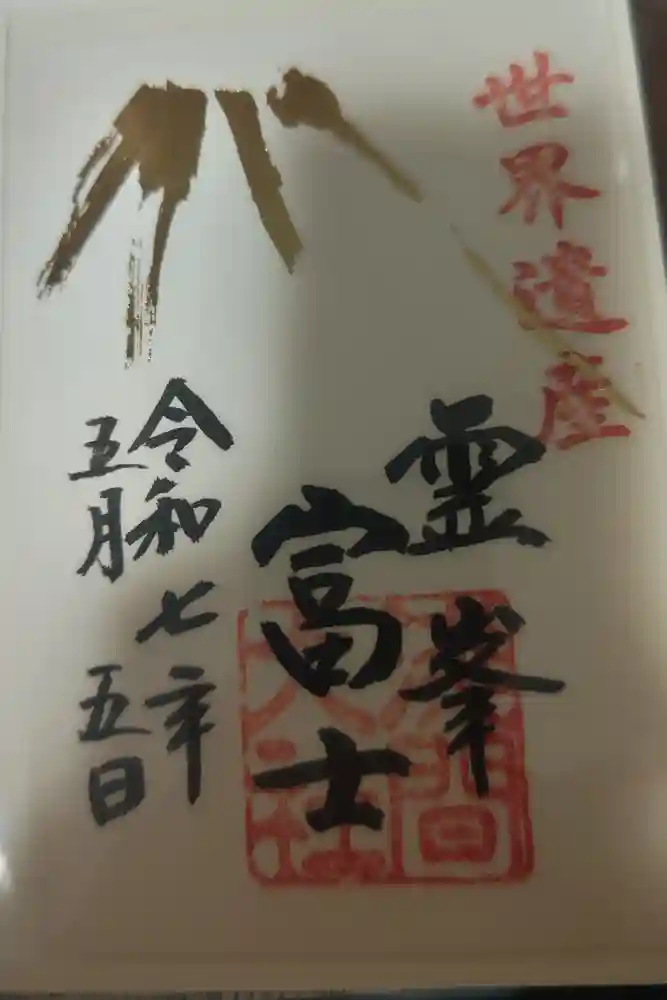 世界遺産
霊峯
富士
浅間
大社
令和七年
五月五日